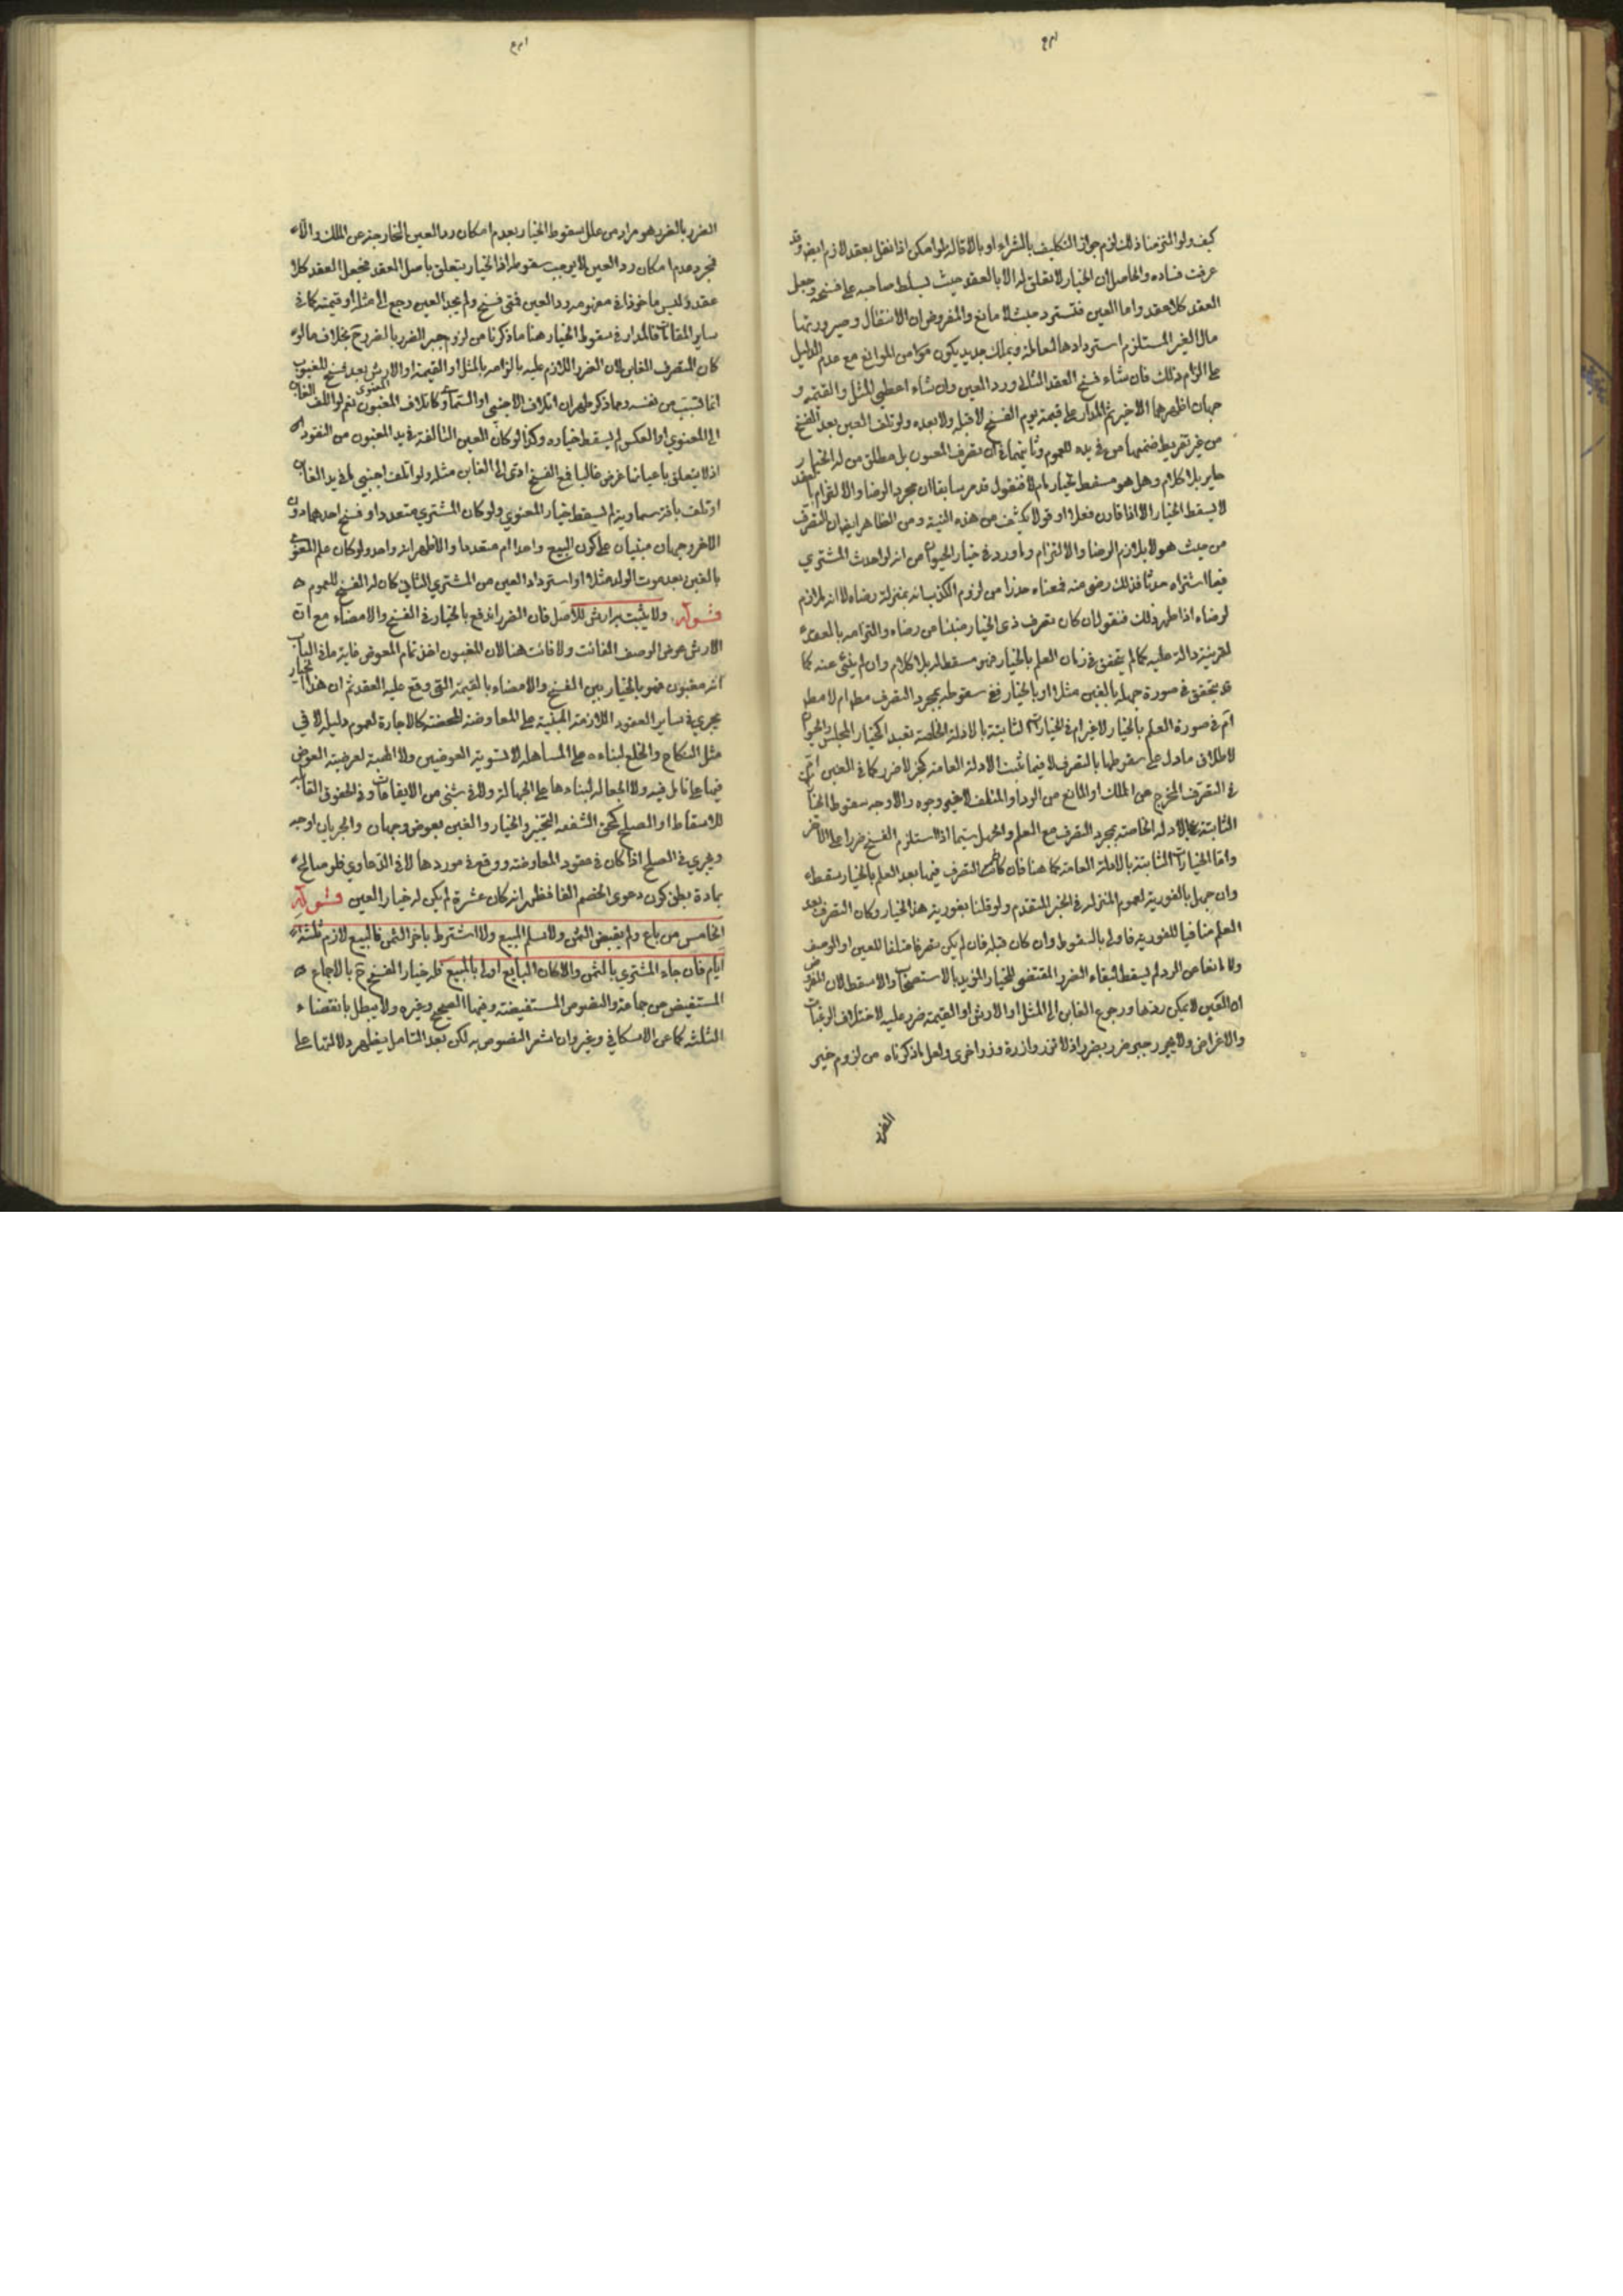 كيف ولو التزمنا ذلك لزم جواز التكليف بالشراء او بالاقالة لو امكن اذا نقل بعقد لازم ايضا وقد
عرفت فساده والحاصل ان الخيار لا تعلق له الا بالعقد حيث يسلط صاحبه على فسخه وجعل
العقد كلا عقد واما العين فتسترد حيث لا مانع والمفروض ان الانتقال وصيرورتها
مال الغير المستلزم استردادها لمعاملة وتملك جديد يكون من الموانع مع عدم الدليل
على الزام ذلك فان شاء فسخ العقد الثاني ورد العين وان شاء اعطى المثل والقيمة و
جهان اظهرهما الاخير ثم المدار على قيمة يوم الفسخ لا قبله ولا بعده ولو تلف العين بعد الفسخ
من غير تفريط ضمنها من في يده للعموم وثانيهما في ان تصرف المغبون بل مطلق من له الخيار
جايز بلا كلام وهل هو مسقط لخياره ام لا فنقول قد مر سابقا ان مجرد الرضا والالتزام بالعقد
لا يسقط الخيار الا اذا قارن فعلا او قولا يكشف من هذه النية ومن الظاهر ايضا ان التصرف
من حيث هو لا يلازم الرضا والالتزام وما ورد في خيار الحيوان من انه لو احدث المشتري
فيما اشتراه حدثا فذلك رضى منه فمعناه حذرا من لزوم الكذب انه بمنزلة رضاه لا انه ملازم
لرضاه اذا ظهر ذلك فنقول ان كان تصرف ذي الخيار منبئا من رضاه والتزامه بالعقد
لقرينة دالة عليه كما لم يتحقق في زمان العلم بالخيار فهو مسقط له بلا كلام وان لم ينبئ عنه كما
قد يتحقق في صورة جهله بالغبن مثلا او بالخيار ففي سقوطه بمجرد التصرف مطلقا ام لا مطلقا
ام في صورة العلم بالخيار لا غير ام في الخيارات الثابتة بالادلة الخاصة تعبدا كخيار المجلس والحيوان
لاطلاق ما دل على سقوطها بالتصرف لا فيما ثبت الادلة العامة كخبر لا ضرر كما في الغبن ام
في التصرف المخرج عن الملك او المانع من الرد او المتلف لا غير وجوه والاوجه سقوط الخيارات
الثابتة بالادلة الخاصة بمجرد التصرف مع العلم والجهل سيما اذا استلزم الفسخ ضررا على الاخر
واما الخيارات الثابتة بالادلة العامة كما هنا فان كان التصرف فيها بعد العلم بالخيار سقط
وان جهل بالفورية لعموم المنزلة في الخبر المتقدم ولو قلنا بفورية هذا الخيار وكان التصرف بعد
العلم منافيا للفورية فاولى بالسقوط وان كان قبله فان لم يكن تصرفا متلفا للعين او الوصف
ولا مانعا من الرد لم يسقط لبقاء الضرر المقتضي للخيار المؤيد بالاستصحاب والا سقط لان المفروض
ان العين لا يمكن ردها ورجوع الغابن الى المثل او الارش او القيمة ضرر عليه لاختلاف الرغبات
والاغراض ولا يجوز جبر ضرر بضرر اذ لا تزر وازرة وزر اخرى ولعل ما ذكرناه من لزوم جبر
الضرر
الضرر بالضرر هو مراد من علل سقوط الخيار بعدم امكان رد العين لخارجيته عن الملك والا
فمجرد عدم امكان رد العين لا يوجب سقوطه اذ الخيار يتعلق باصل العقد فيجعل العقد كلا
عقد وليس ماخوذا في مفهومه رد العين فمتى فسخ ولم يجد العين رجع الى مثله او قيمته كما في
ساير المقامات فالمدار في سقوط الخيار هنا ما ذكرنا من لزوم جبر الضرر بالضرر ح بخلاف ما لو
كان المتصرف الغابن لان الضرر اللازم عليه بالزامه بالمثل او القيمة او الارش بعد فسخ المغبون
انما تسبب من نفسه ومما ذكر ظهر ان اتلاف الاجنبي او السماوي كاتلاف المغبون نعم لو اتلف الغابن
او المغبون او العكس لم يسقط خياره وكذا لو كان العين التالفة في يد المغبون من النقود
اذ لا يتعلق باعيانها غرض غالبا فمع الفسخ ادى الى الغابن مثله ولو اتلف اجنبي ما في يد الغابن
او تلف بافة سماوية لم يسقط خيار المغبون ولو كان المشتري متعددا وفسخ احدهما دون
الاخر وجهان مبنيان على كون البيع واحدا ام متعددا والاظهر انه واحد ولو كان علم المغبون
بالغبن بعد موت الولد مثلا او استرداد العين من المشتري الثاني كان له الفسخ للعموم
قوله ولا يثبت به ارش للاصل فان الضرر اندفع بالخيار في الفسخ والامضاء مع ان
الارش عوض الوصف الفائت ولا فائت هنا لان المغبون اخذ تمام المعوض غاية ما في الباب
انه مغبون فهو بالخيار بين الفسخ والامضاء بالقيمة التي وقع عليه العقد ثم ان هذا الخيار
يجري في ساير العقود اللازمة المبنية على المعاوضة المحضة كالاجارة لعموم دليله لا في
مثل النكاح والخلع لبناءه على المساهلة لا تسوية العوضين ولا الهبة لعرضية العوض
فيها على تامل فيه ولا الجعالة لبناءها على الجهالة ولا في شيء من الايقاعات وفي الحقوق القابلة
للاسقاط او الصلح كحق الشفعة والتحجير والخيار والغبن بعوض وجهان والجريان اوجه
ويجري في الصلح اذا كان في عقود المعاوضة ووقع في موردها لا في الدعاوي فلو صالح
بمادة بظن كون دعوى الخصم الفا فظهر انه كان عشرة لم يكن له خيار الغبن قوله
الخامس من باع ولم يقبض الثمن ولا سلم المبيع ولا اشترط تاخر الثمن فالبيع لازم ثلثة
ايام فان جاء المشتري بالثمن والا كان البايع اولى بالمبيع فله خيار الفسخ ح بالاجماع
المستفيض من جماعة والنصوص المستفيضة وفيها الصحيح وغيره ولا يبطل بانقضاء
الثلثة كما عن الاسكافي وغيره وان اشعر النصوص به لكن بعد التامل يظهر دلالتها على